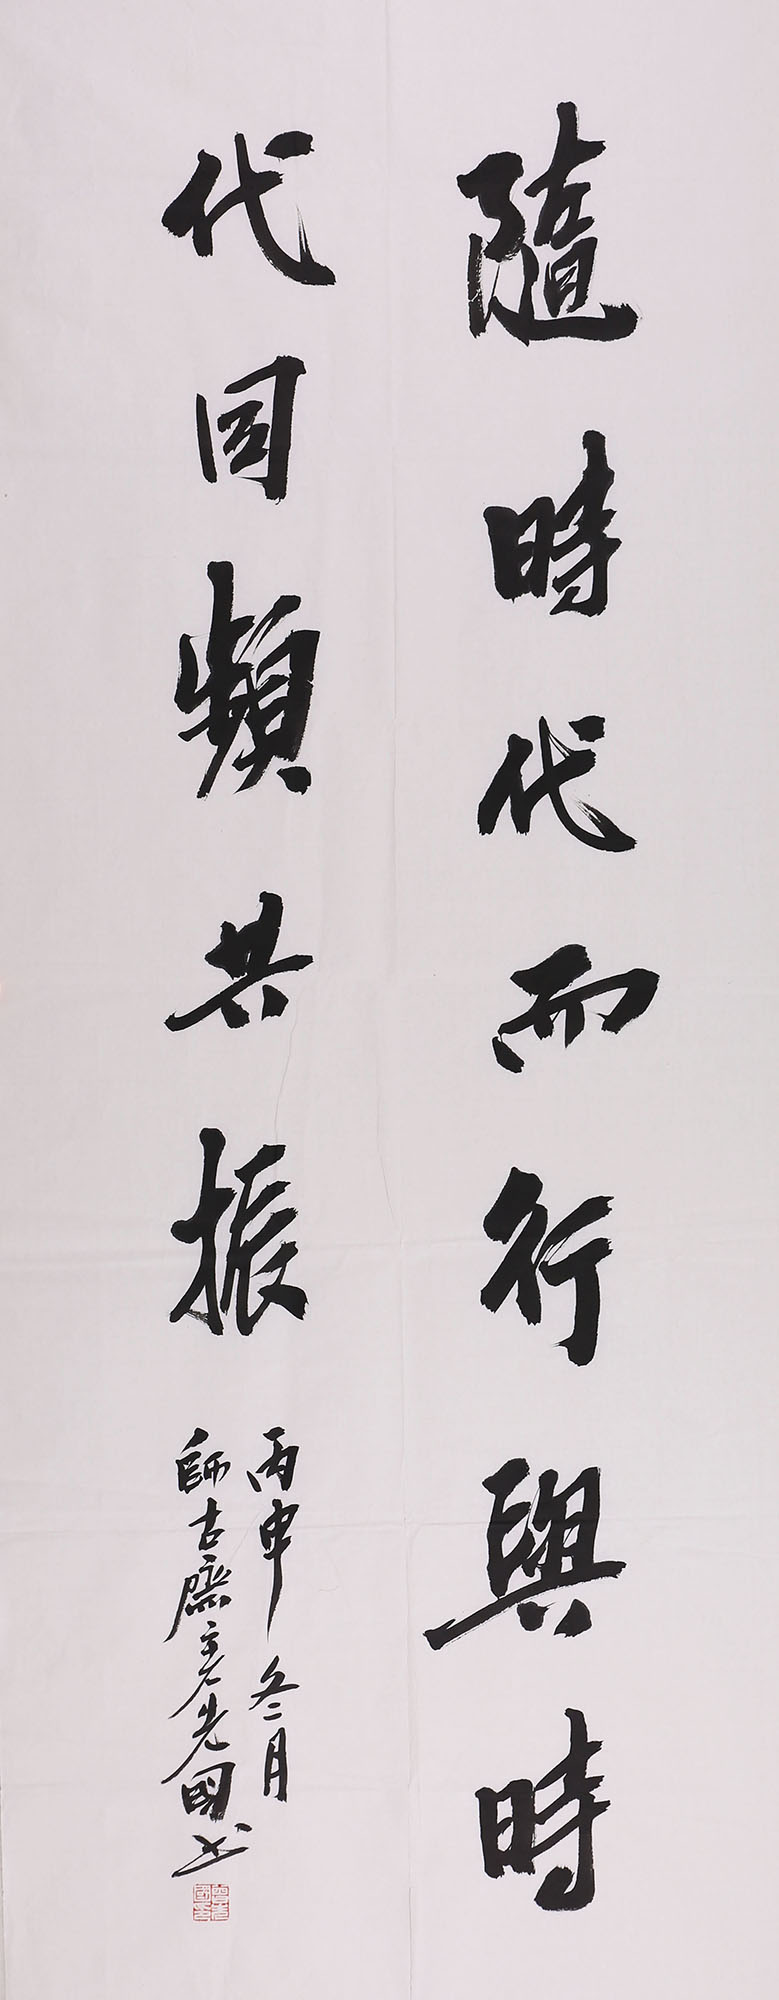 隨時代而行與時
代同頻共振
丙申冬月
師古齋主先國书